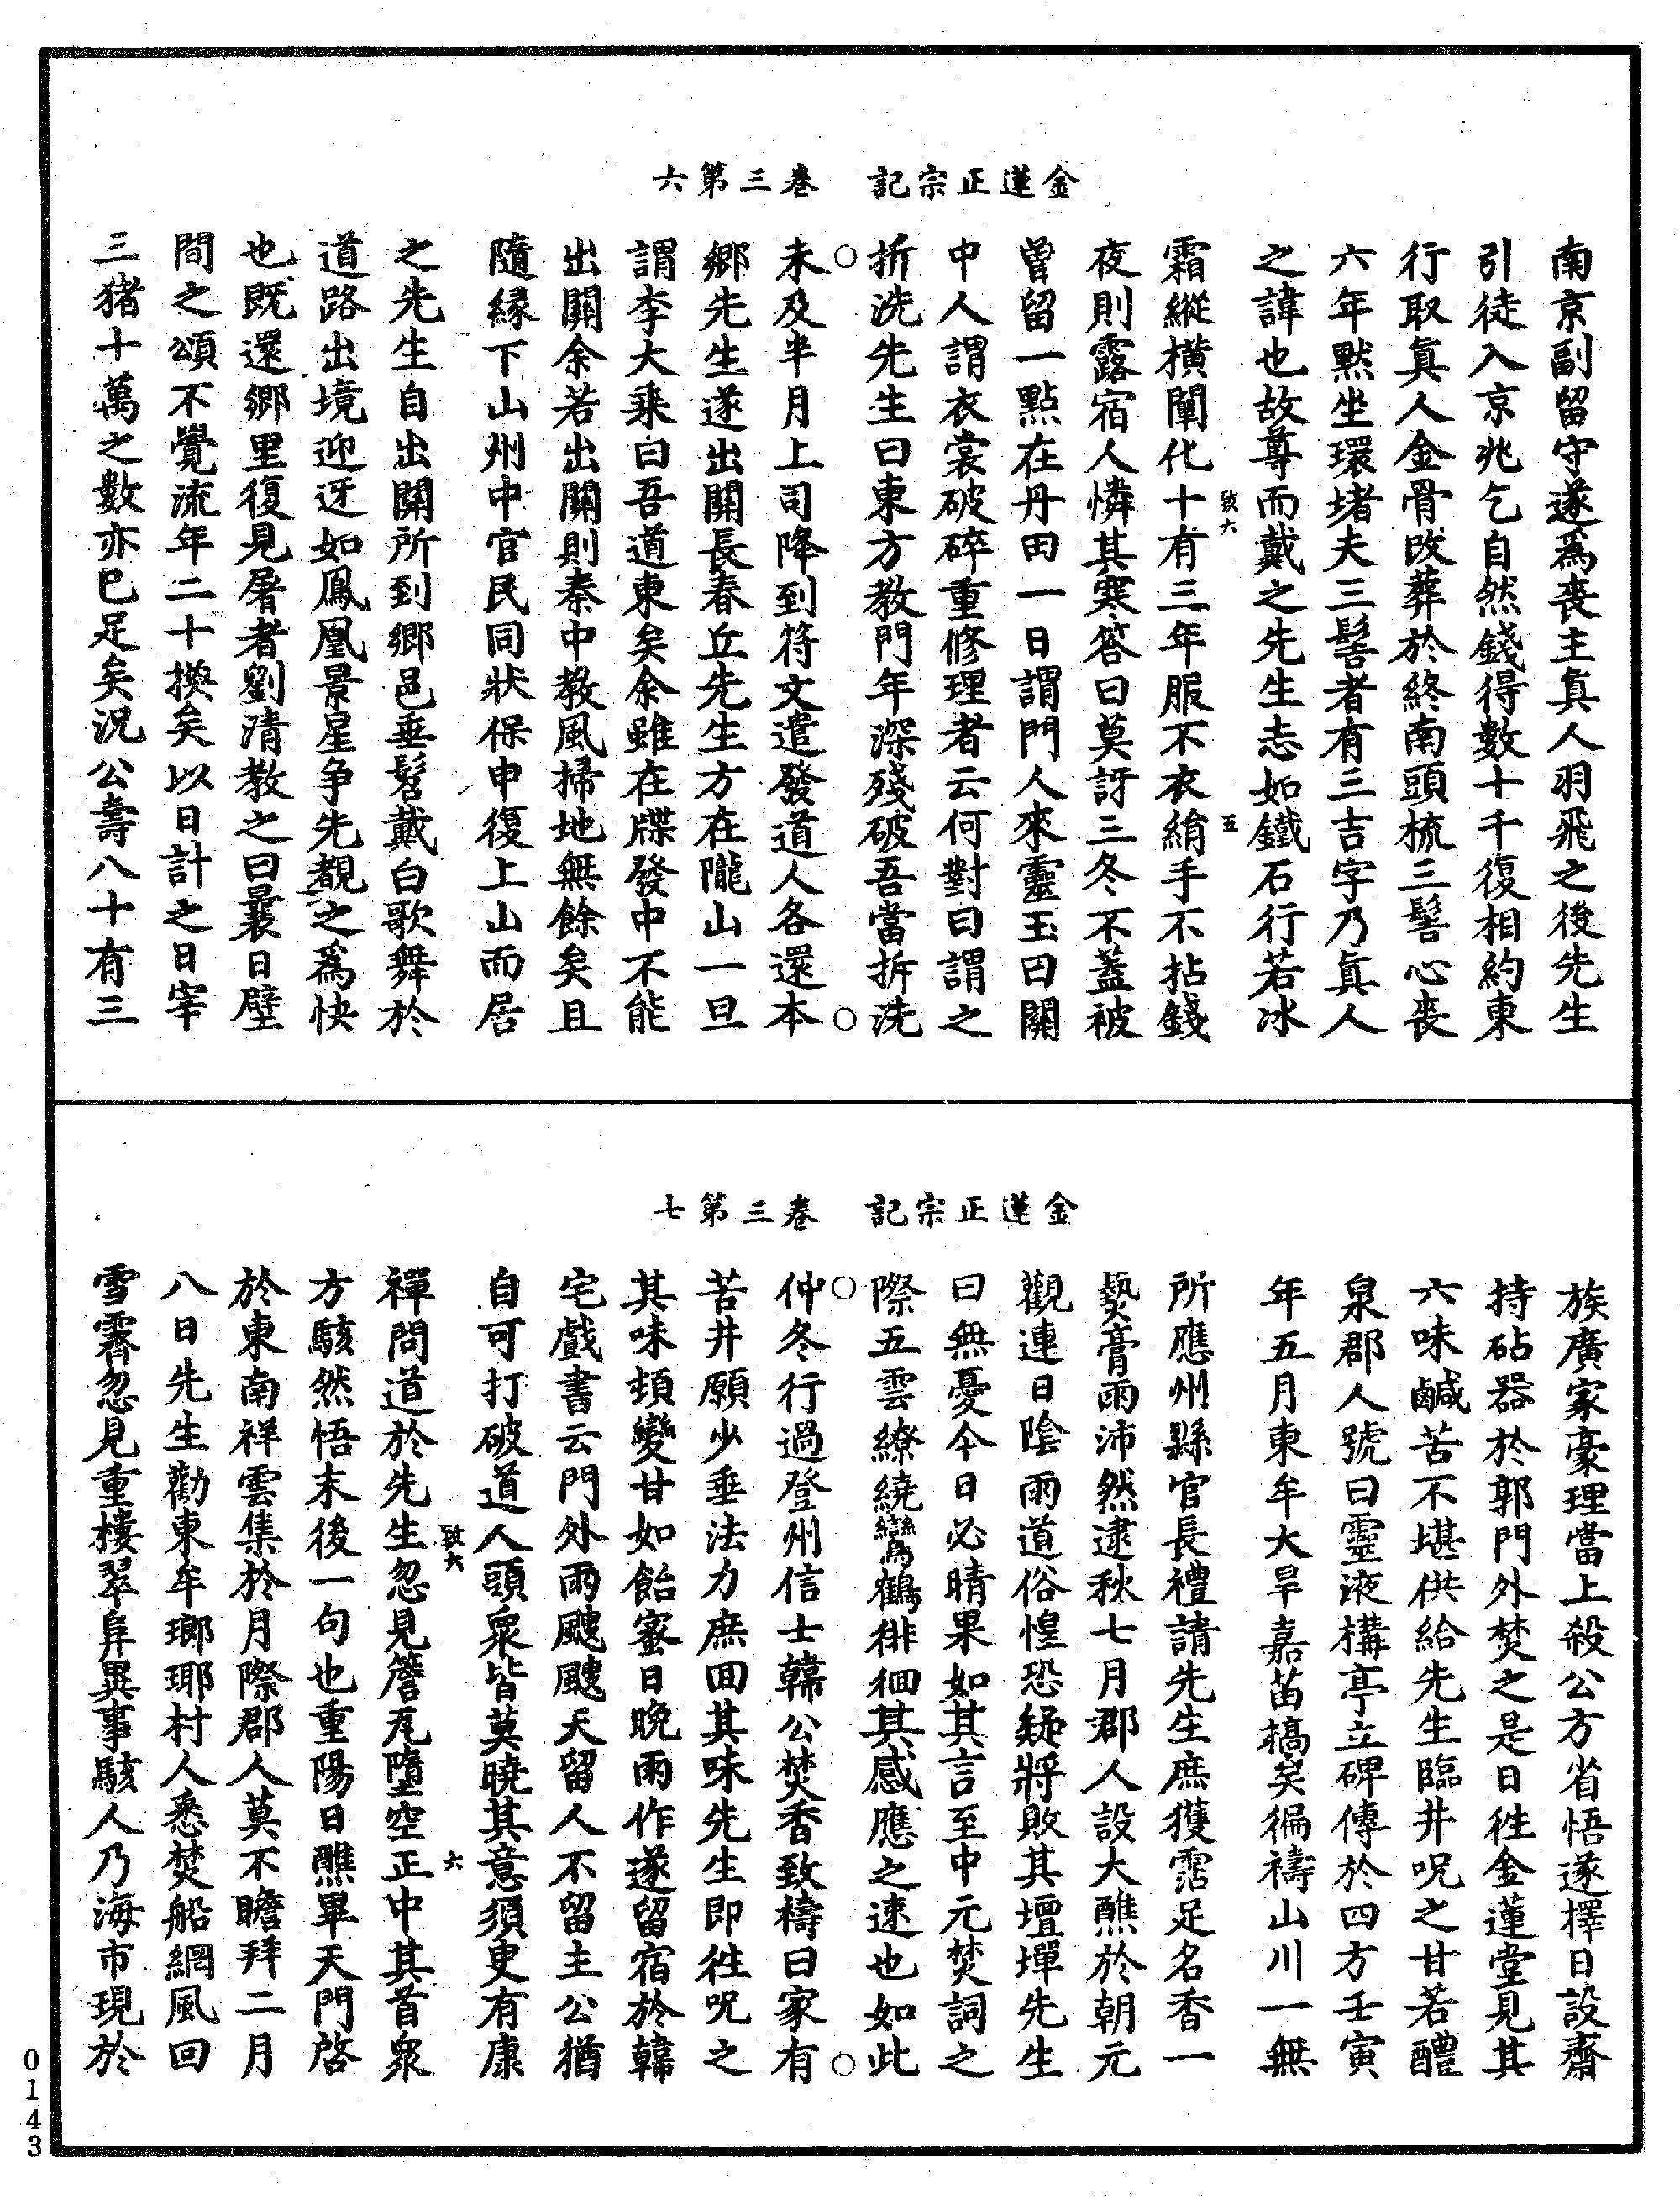 金蓮正宗記　卷三第六
南京副留守遂爲喪主真人羽飛之後先生
引徒入京兆乞自然錢得數十千復相約東
行取真人金骨改葬於終南頭梳三髻心喪
六年默坐環堵夫三髻者有三吉字乃真人
之諱也故尊而戴之先生志如鐵石行若冰
致六　五
霜縱橫闡化十有三年服不衣絹手不拈錢
夜則露宿人憐其寒答曰莫訝三冬不蓋被
曾留一點在丹田一日謂門人來靈玉曰關
中人謂衣裳破碎重修理者云何對曰謂之
折洗先生曰東方教門年深殘破吾當拆洗
○　○
未及半月上司降到符文遣發道人各還本
鄉先生遂出關長春丘先生方在隴山一旦
謂李大乘曰吾道東矣余雖在牒發中不能
出關余若出關則秦中教風掃地無餘矣且
隨緣下山州中官民同狀保申復上山而居
之先生自出關所到鄉邑垂髫戴白歌舞於
道路出境迎迓如鳳凰景星争先覩之爲快
也既還鄉里復見屠者劉清教之曰曩日壁
間之頌不覺流年二十換矣以日計之日宰
三猪十萬之數亦已足矣況公壽八十有三
金蓮正宗記　卷三第七
族廣家豪理當上殺公方省悟遂擇日設齋
持砧器於郭門外焚之是日徃金蓮堂見其
六味鹹苦不堪供給先生臨井呪之甘若醴
泉郡人號曰靈液構亭立碑傳於四方壬寅
年五月東牟大旱嘉苗槁矣徧禱山川一無
所應州縣官長禮請先生庶獲霑足名香一
爇膏雨沛然逮秋七月郡人設大醮於朝元
觀連日陰雨道俗惶恐疑將敗其壇墠先生
曰無憂今日必晴果如其言至中元焚詞之
際五雲繚繞鸞鶴徘徊其感應之速也如此
○　○
仲冬行過登州信士韓公焚香致禱曰家有
苦井願少垂法力庶回其味先生即徃呪之
其味頓變甘如飴蜜日晚雨作遂留宿於韓
宅戲書云門外雨颼颼天留人不留主公猶
自可打破道人頭衆皆莫曉其意須臾有康
致六　六
禪問道於先生忽見簷瓦墮空正中其首衆
方駭然悟末後一句也重陽日醮畢天門啓
於東南祥雲集於月際郡人莫不瞻拜二月
八日先生勸東牟瑯琊村人悉焚船網風回
雪霽忽見重樓翠阜異事駭人乃海市現於
0143